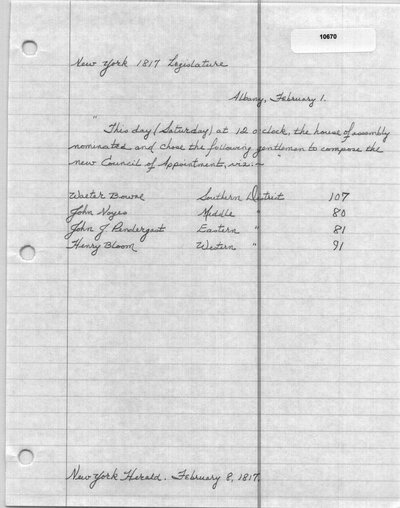 10670
New York 1817 Legislature
Albany, February 1.
"This day (Saturday) at 12 o'clock, the house of assembly
nominated and chose the following gentlemen to compose the
new Council of Appointment, viz:~"
Walter Bowne Southern District 107
John Noyes Middle " 80
John J Pendergast Eastern " 81
Henry Bloom Western " 91
New York Herald. February 8, 1817.